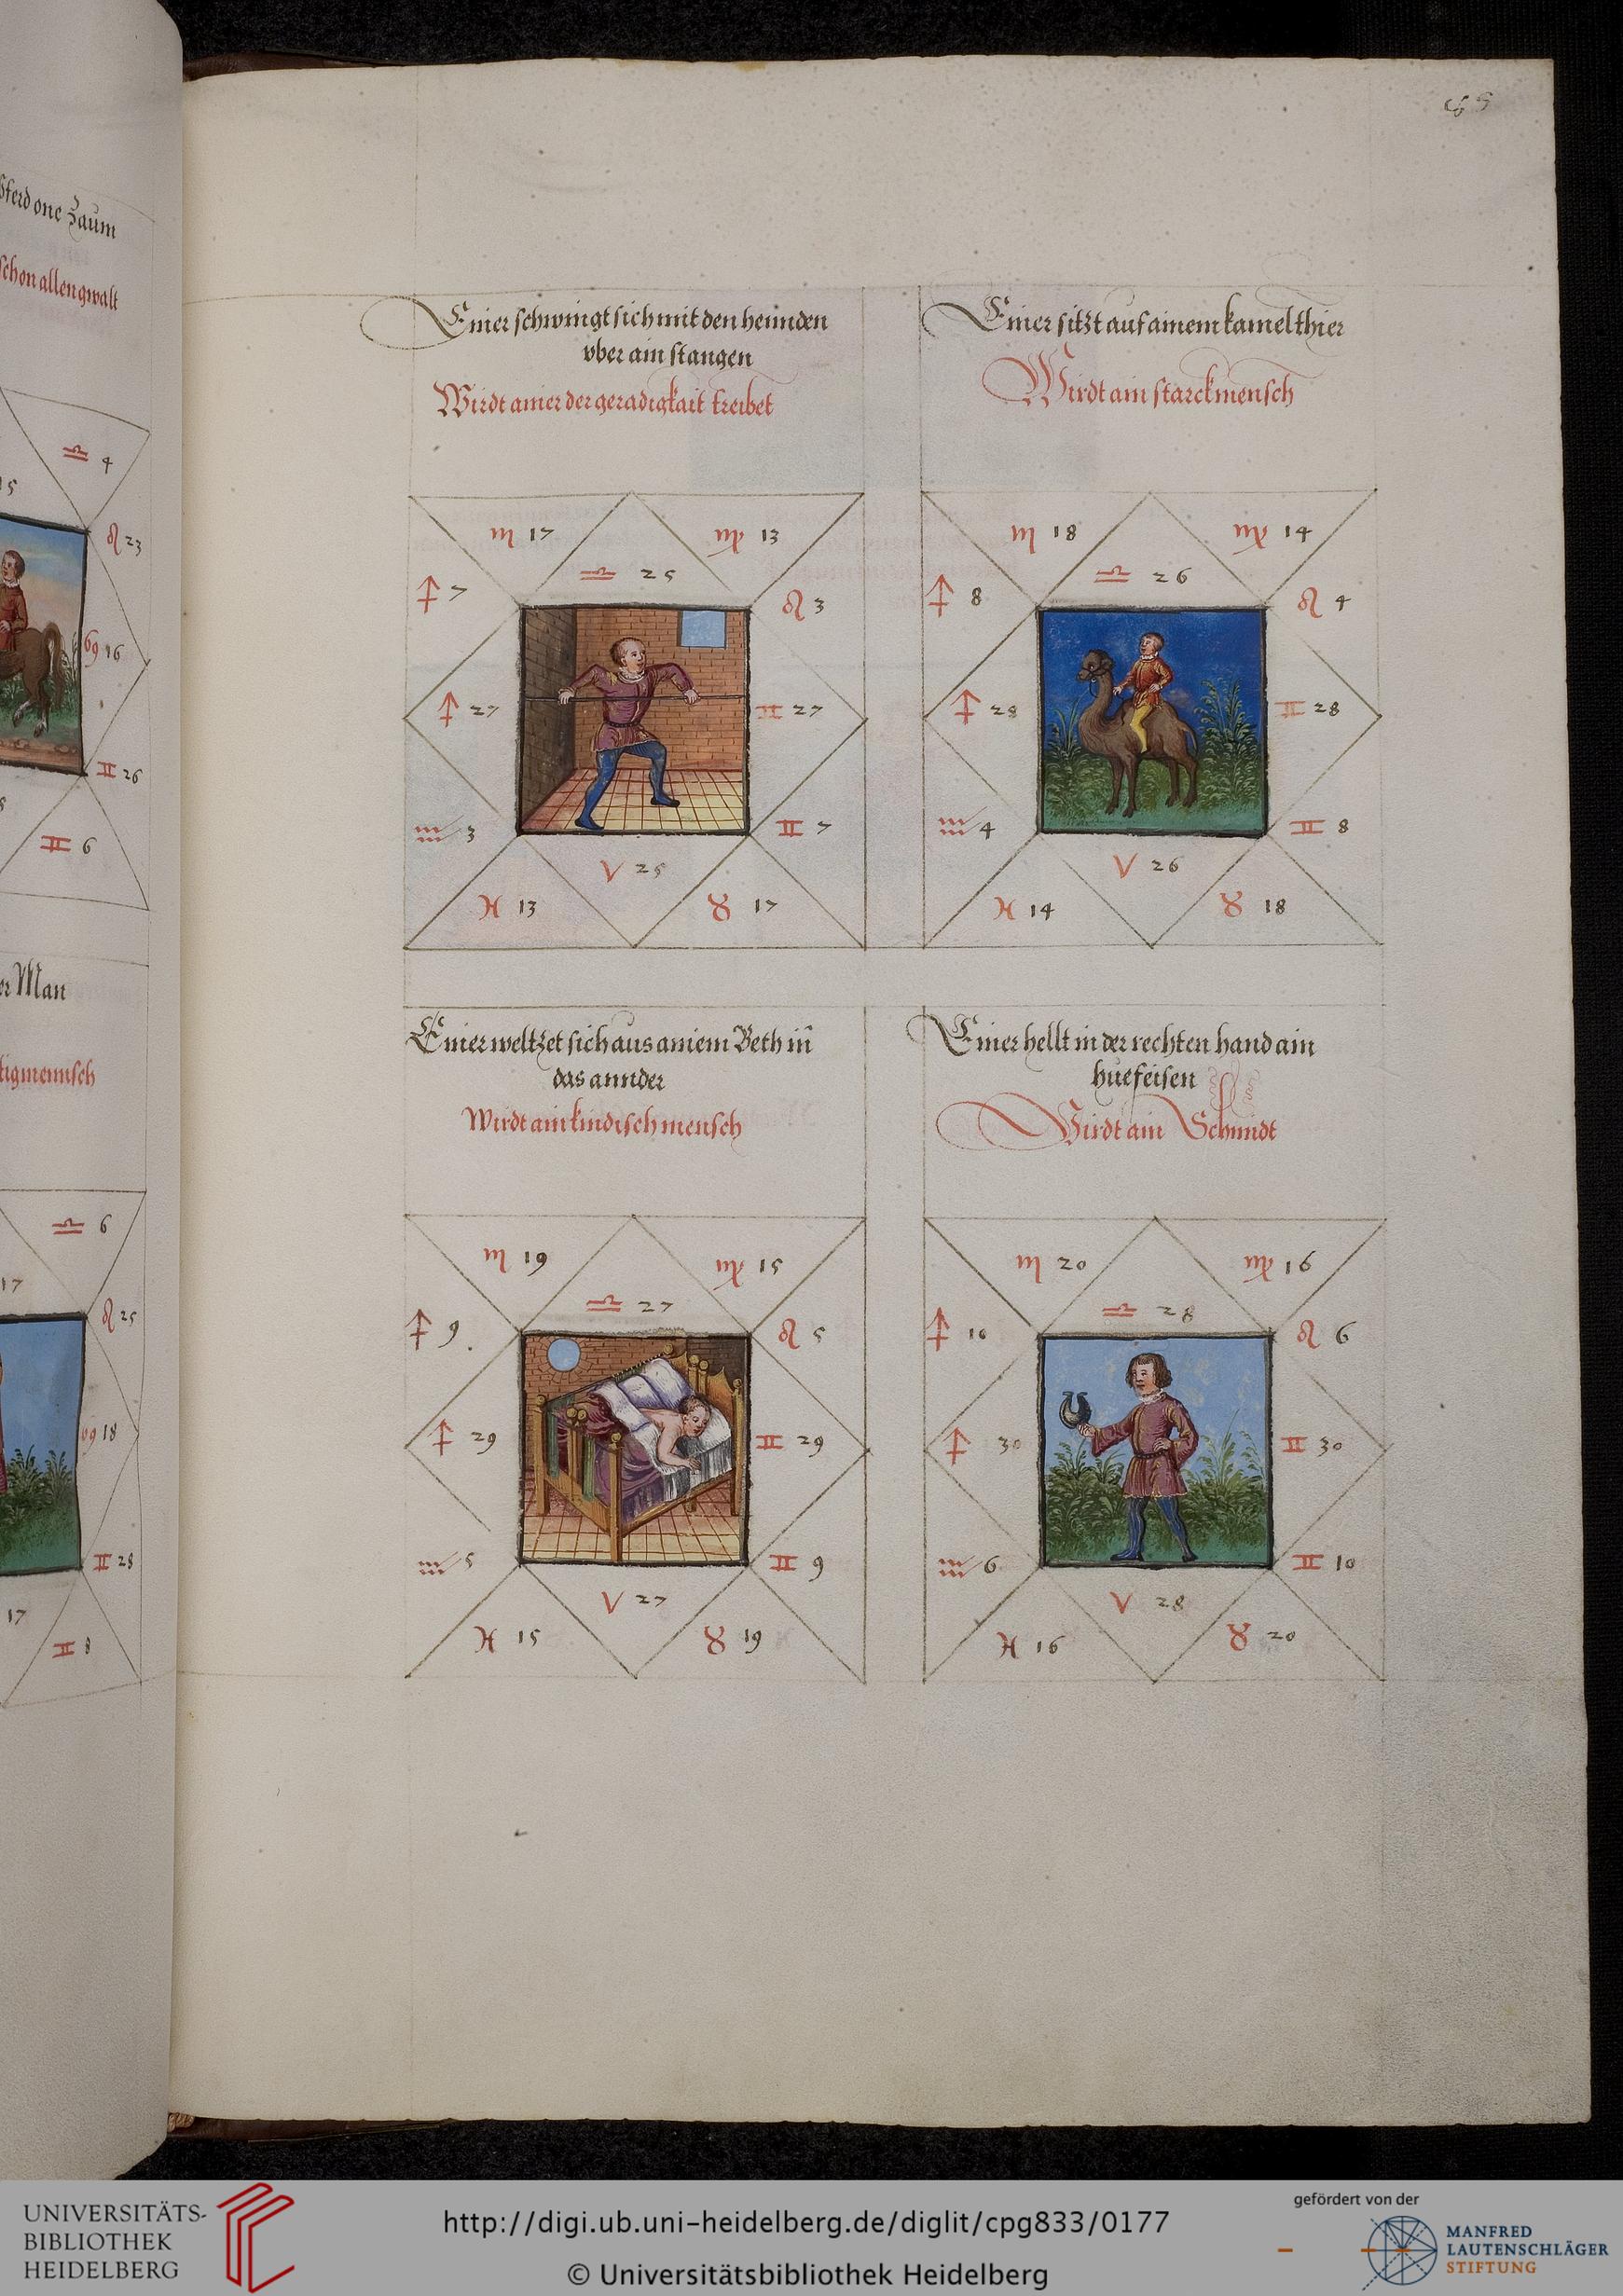 Pferd one Zaum
schon allen gwalt
♎ 4
15
♌ 23
69 16
♊ 26
♊ 6
er Man
tig mennsch
♎ 6
17
♌ 25
69 18
♊ 28
17
♊ 8
85
Einer schwingt sich mit den hennden
vber ain stangen
Wirdt ainer der geradigkait treibet
♏ 17 ♍ 13
♎ 25
♐ 7 ♌ 3
♐ 27 ♊ 27
♒ 3 ♊ 7
♈ 25
♓ 13 ♉ 17
Einer sitzt auf ainem kamelthier
Wirdt ain starck mensch
♏ 18 ♍ 14
♎ 26
♐ 8 ♌ 4
♐ 28 ♊ 28
♒ 4 ♊ 8
♈ 26
♓ 14 ♉ 18
Einer weltzet sich aus ainem Beth in
das annder
Wirdt ain kindisch mensch
♏ 19 ♍ 15
♎ 27
♐ 9 ♌ 5
♐ 29 ♊ 29
♒ 5 ♊ 9
♈ 27
♓ 15 ♉ 19
Einer hellt in der rechten hand ain
huefeisen
Wirdt ain Schmidt
♏ 20 ♍ 16
♎ 28
♐ 10 ♌ 6
♐ 30 ♊ 30
♒ 6 ♊ 10
♈ 28
♓ 16 ♉ 20
UNIVERSITÄTS-
BIBLIOTHEK
HEIDELBERG
http://digi.ub.uni-heidelberg.de/diglit/cpg833/0177
© Universitätsbibliothek Heidelberg
gefördert von der
MANFRED
LAUTENSCHLÄGER
STIFTUNG